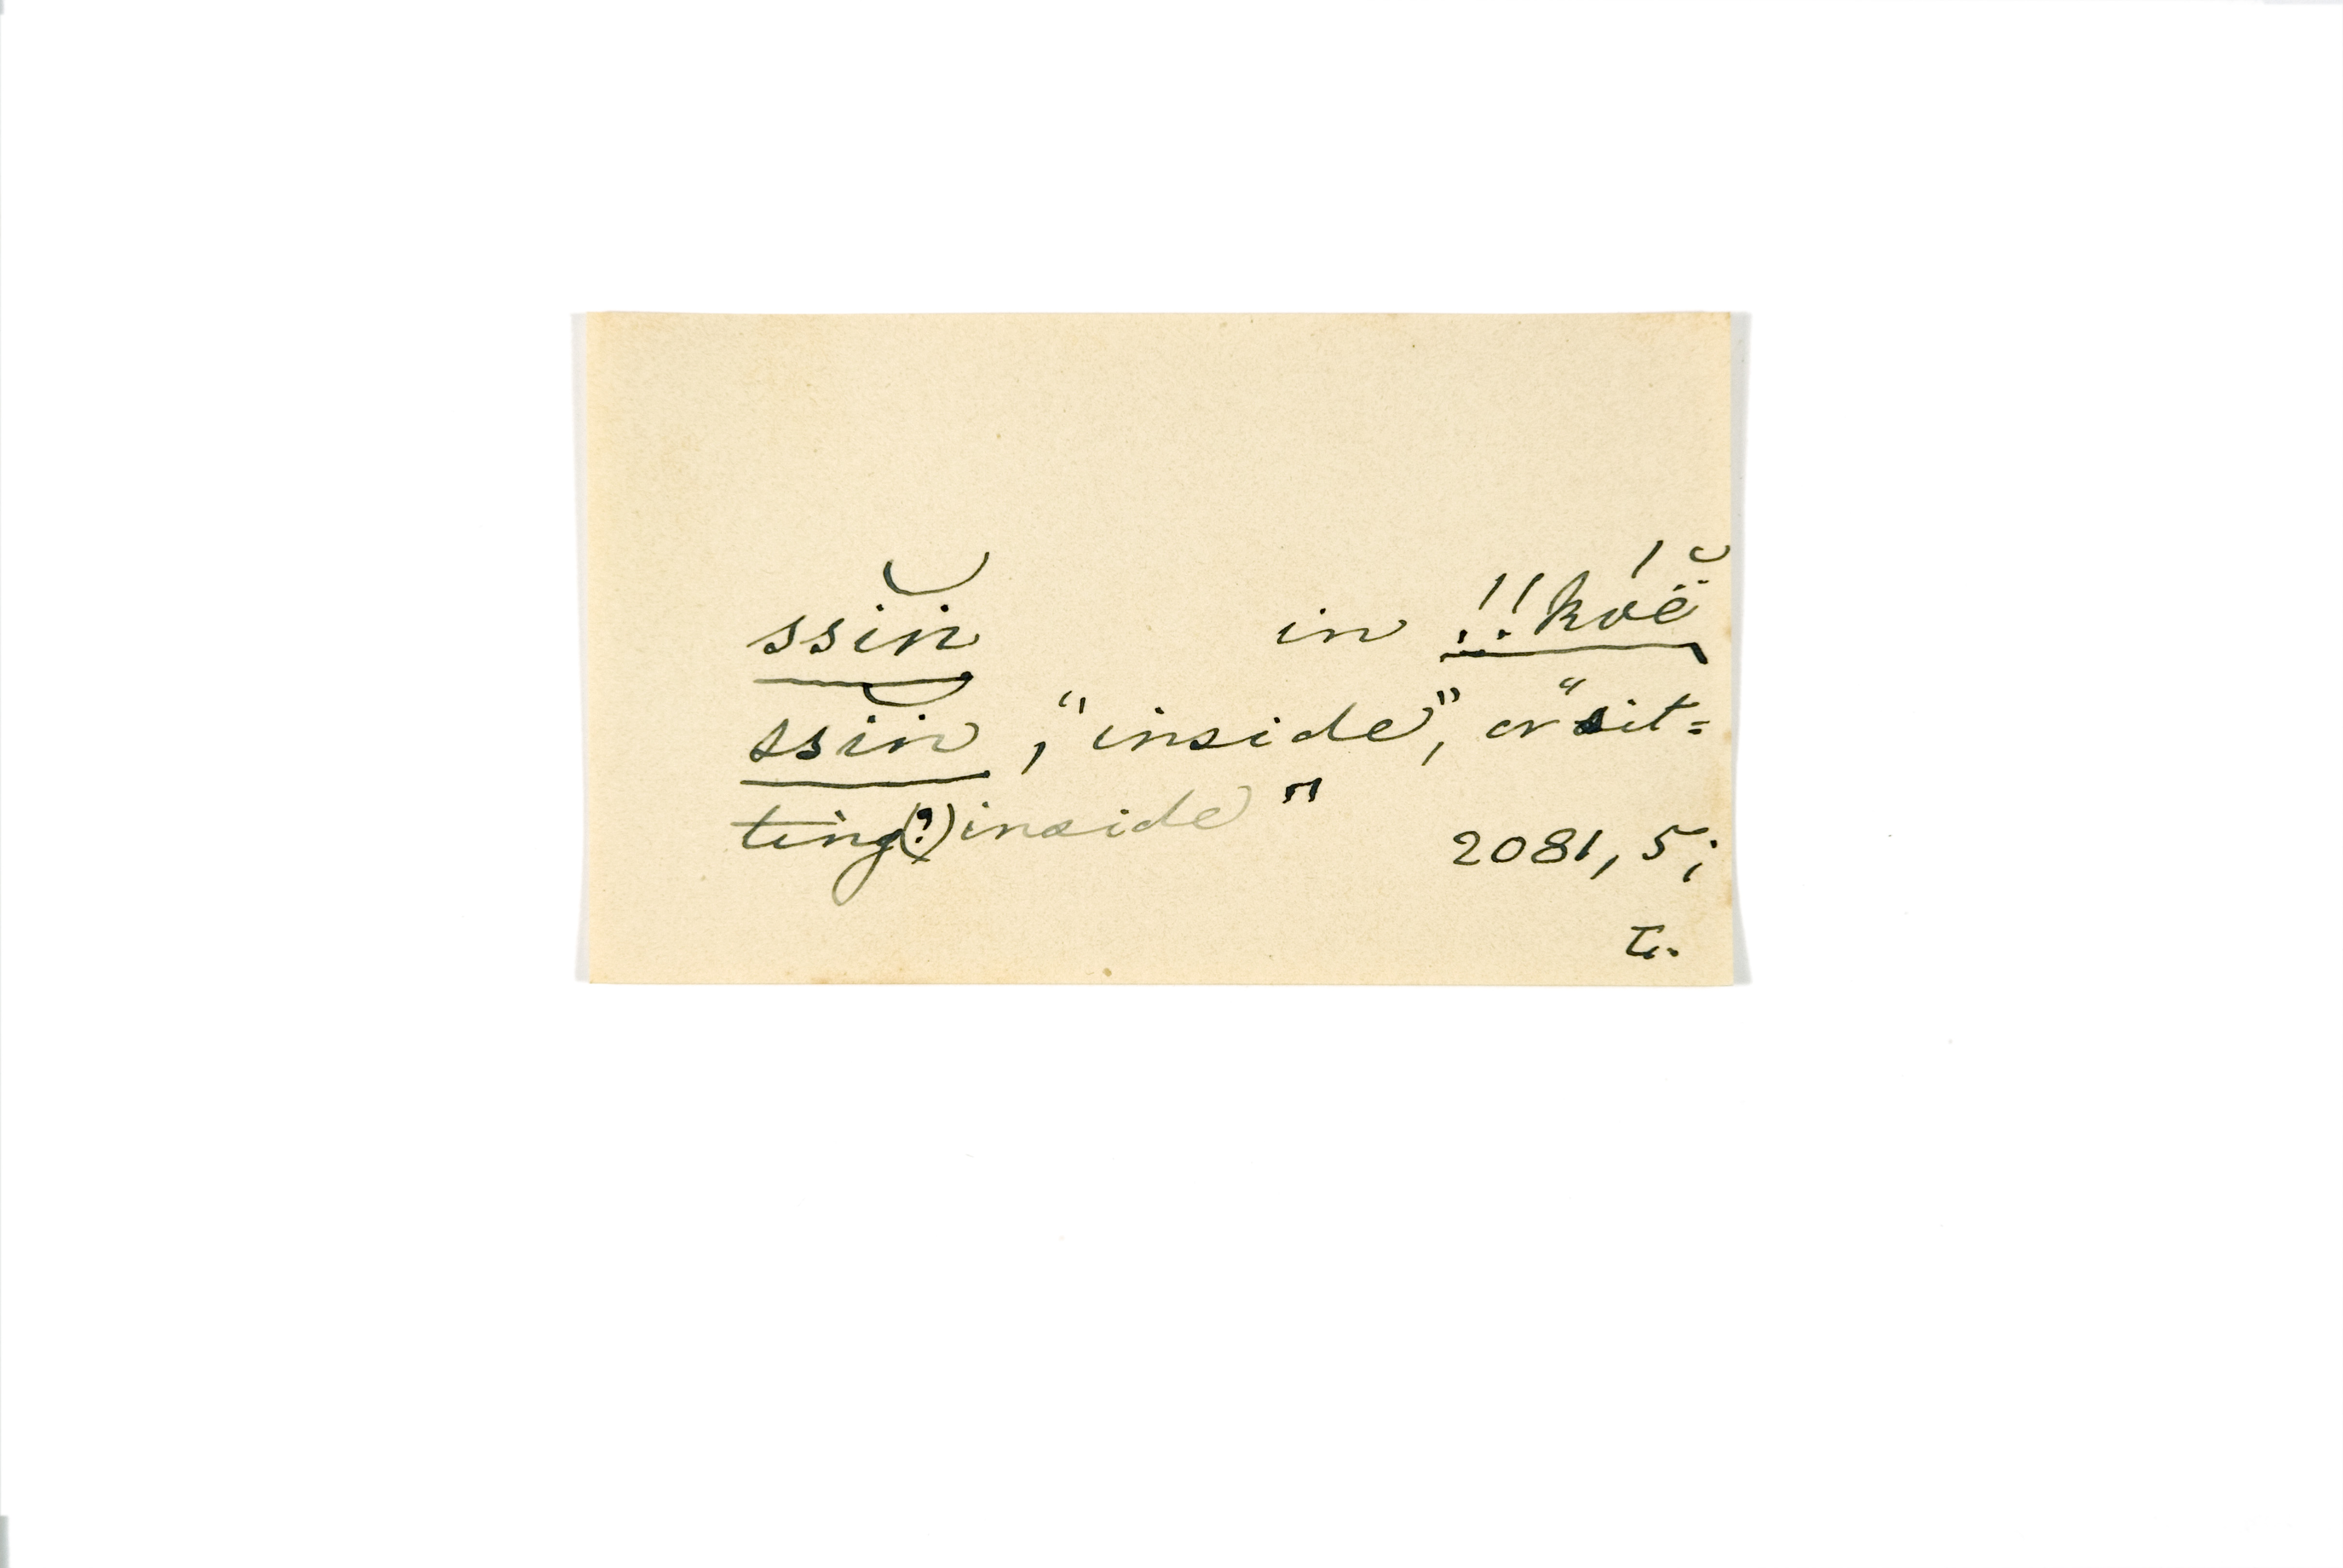 ssĭn in !!kóĕ̈
ssĭn, "inside", or "sit=
ting(?) inside"
2081, 5;
T.